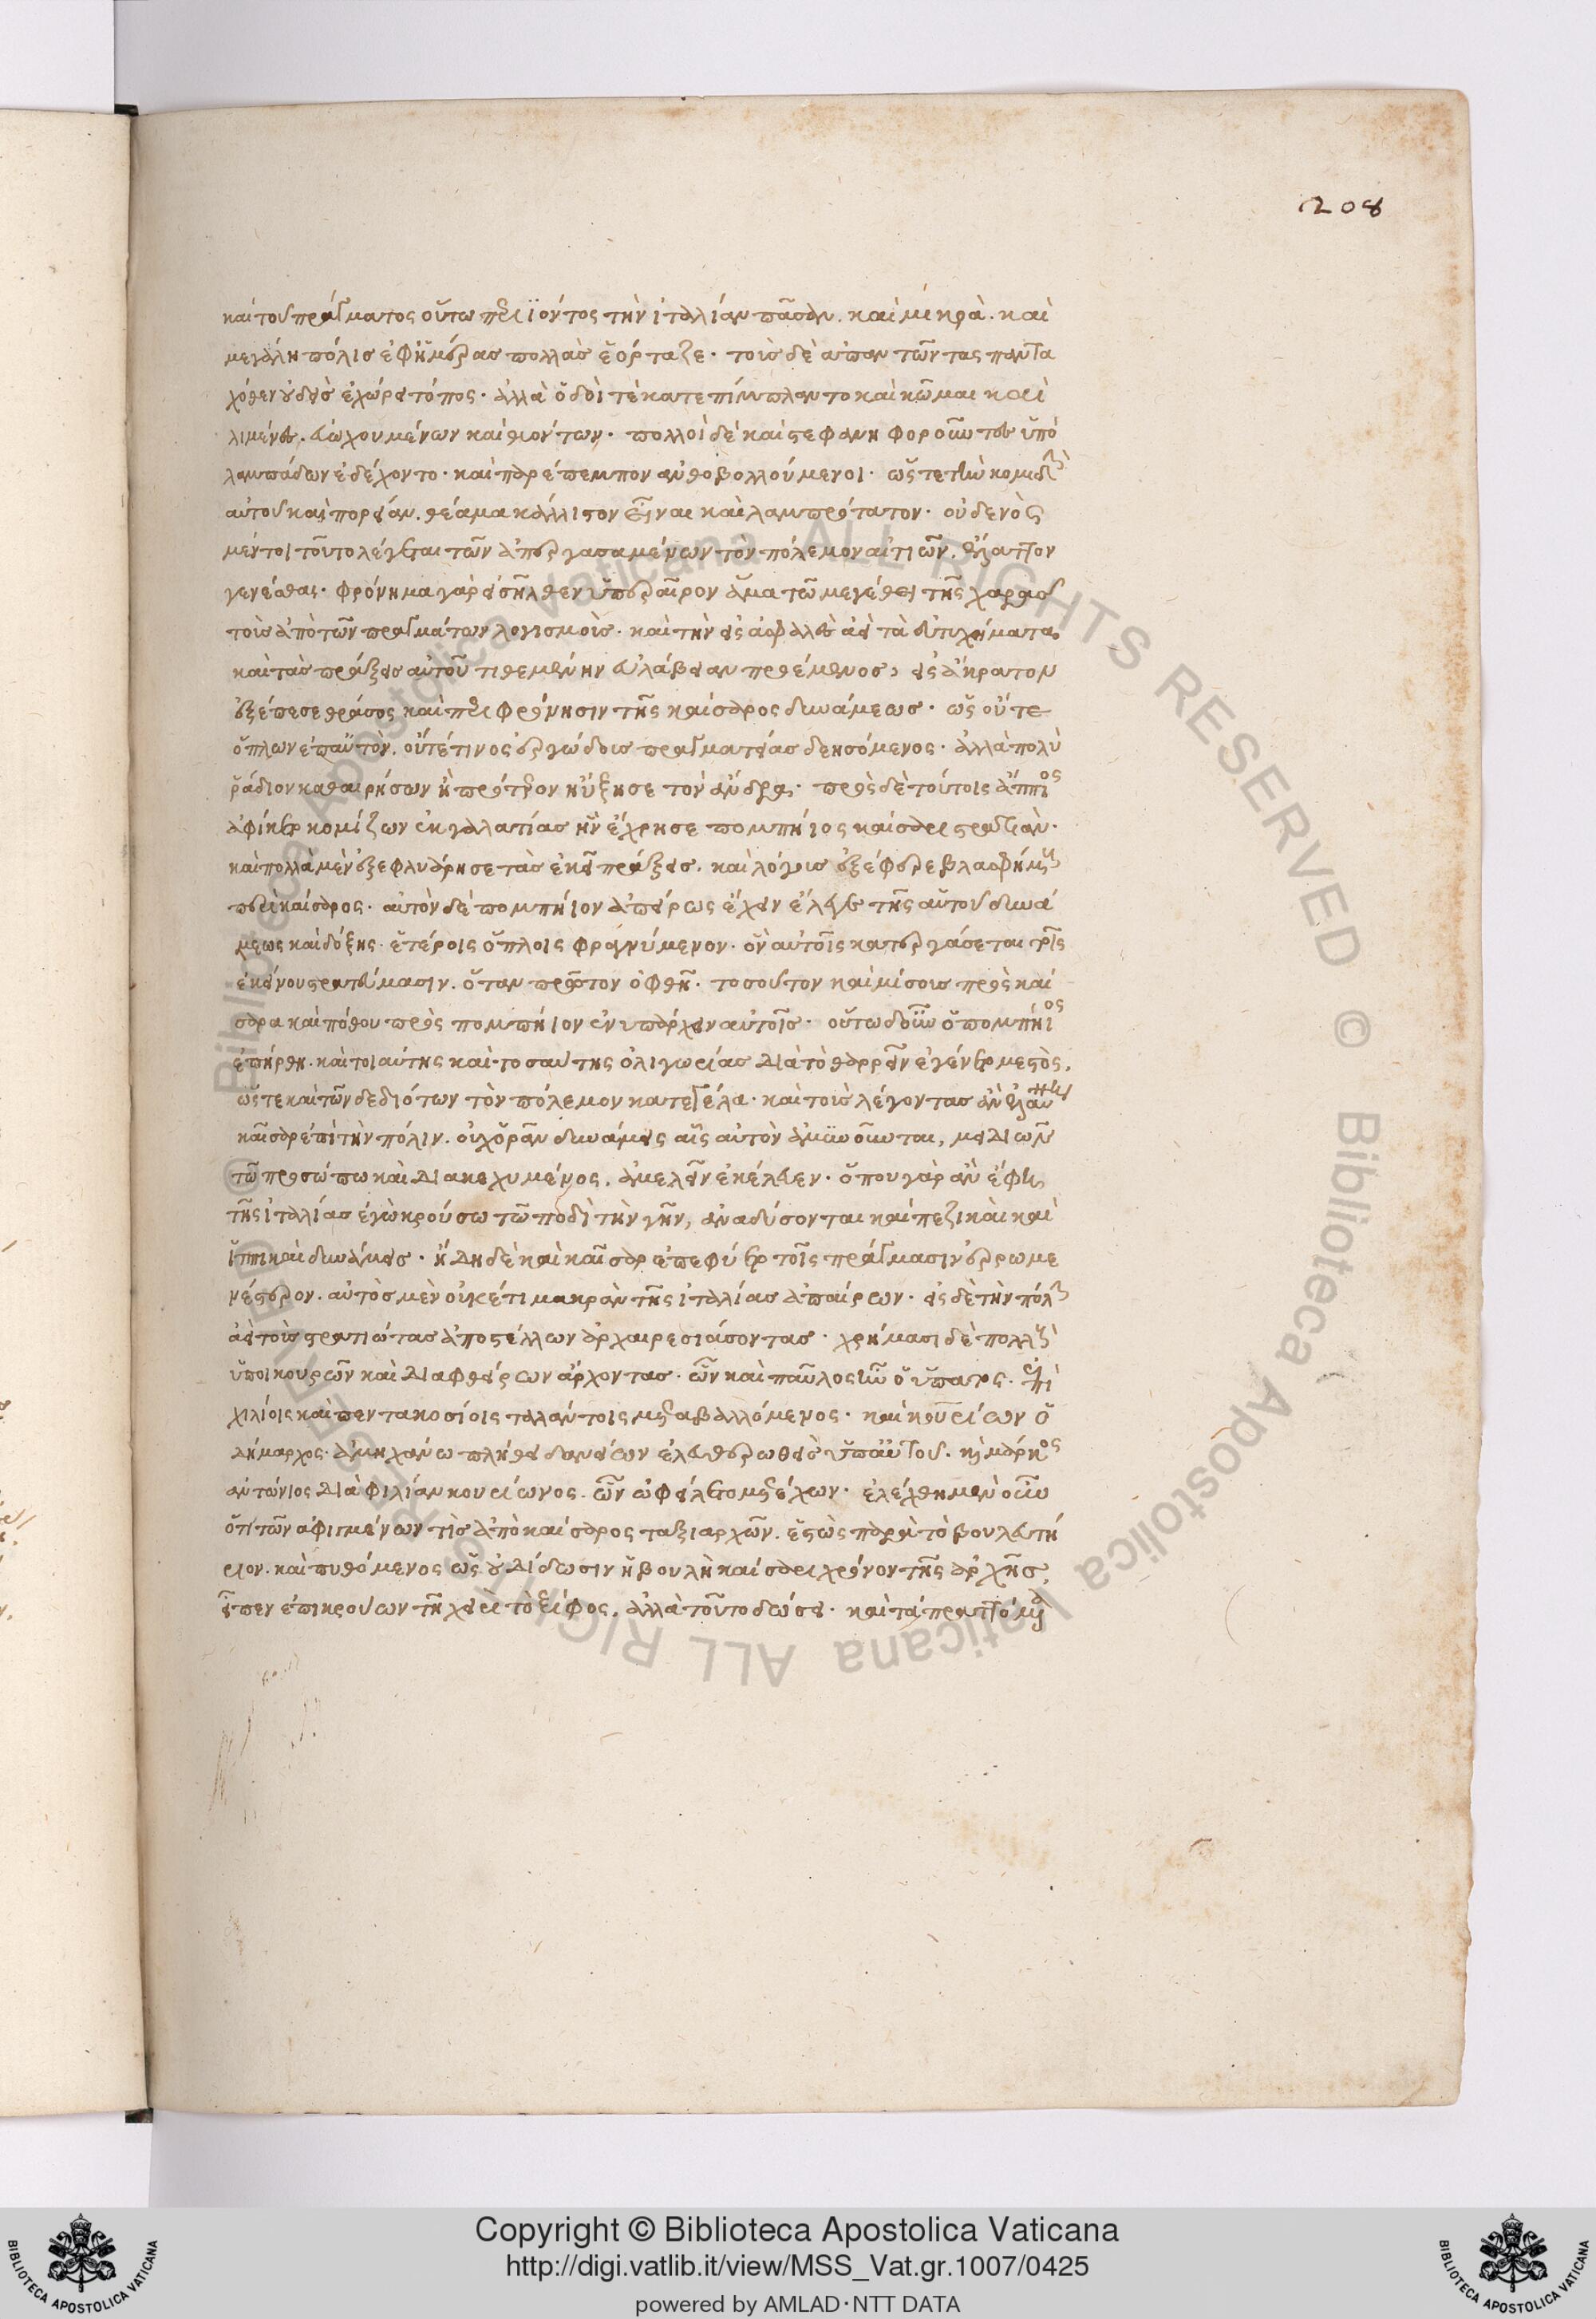 208
καὶ τοῦ πράγματος οὕτω περιϊόντος τὴν ἰταλίαν πᾶσαν. καὶ μικρὰ. καὶ
μεγάλη πόλις ἐφ ἡμέρας πολλὰς ἑόρταζε. τοὺς δὲ ἀπαντῶντας παντα
χόθεν οὐδεὶς ἐχώρει τόπος. ἀλλὰ ὁδοὶ τὲ κατεπίμπλαντο καὶ κῶμαι καὶ
λιμένες. εὐωχουμένων καὶ θυόντων. πολλοὶ δὲ καὶ στεφανηφοροῦντες ὑπὸ
λαμπάδων ἐδέχοντο. καὶ παρέπεμπον ἀνθοβολλούμενοι. ὥστε τὴν κομιδὴν
αὐτοῦ καὶ πορείαν. θέαμα κάλλιστον εἶναι καὶ λαμπρότατον. οὐδενὸς
μέντοι τοῦτο λέγεται τῶν ἀπεργασαμένων τὸν πόλεμον αἰτιῶν. ἔλαττον
γενέσθαι. φρόνημα γὰρ εἰσῆλθεν ὑπέραυρον ἅμα τῶ μεγέθει τῆς χαρᾶς
τοὺς ἀπὸ τῶν πραγμάτων λογισμοὺς. καὶ τὴν εἰς ἀσφαλὲς ἀεὶ τὰ εὐτυχήματα
καὶ τὰς πράξεις αὐτοῦ τιθεμένην εὐλάβειαν προέμενος, εἰς ἄκρατον
ἐξέπεσε θράσος καὶ περιφρόνησιν τῆς καίσαρος δυνάμεως. ὡς οὔτε
ὅπλων ἐπαὐτὸν. οὔτέ τινος ἐργώδους πραγματείας δεησόμενος. ἀλλὰ πολὺ
ῥάδιον καθαιρήσων ἢ πρότερον ηὔξησε τὸν ἄνδρα. πρὸς δὲ τούτοις ἄππιος
ἀφίκετο κομίζων ἐκ γαλατίας ἣν ἔχρησε πομπήιος καίσαρι στρατιὰν.
καὶ πολλὰ μὲν ἐξεφλυάρησε τὰς ἐκεῖ πράξεις. καὶ λόγους ἐξέφερε βλασφήμους
περὶ καίσαρος. αὐτὸν δὲ πομπήιον ἀπείρως ἔχειν ἔλεγε τῆς αὑτοῦ δυνά
μεως καὶ δόξης. ἑτέροις ὅπλοις φραγνύμενον. ὃν αὐτοῖς κατεργάσεται τοῖς
ἐκείνου στρατεύμασιν. ὅταν πρῶτον ὀφθῆ. τοσοῦτον καὶ μίσους πρὸς καί
σαρα καὶ πόθου πρὸς πομπήιον ἐνυπάρχειν αὐτοῖς. οὕτω δ οὖν ὁ πομπήιος
ἐπήρθη. καὶ τοιαύτης καὶ τοσαύτης ὀλιγωρίας διὰ τὸ θαρρεῖν ἐγένετο μεστὸς.
ὥστε καὶ τῶν δεδιότων τὸν πόλεμον κατεγέλα. καὶ τοὺς λέγοντας ἂν ἐλαύνη
καῖσαρ ἐπὶ τὴν πόλιν. οὐχ ὁρᾶν δυνάμεις αἷς αὐτὸν ἀμυνοῦνται, μειδιῶν
τῶ προσώπω καὶ διακεχυμένος. ἀμελεῖν ἐκέλευεν. ὅπου γὰρ ἂν ἔφη
τῆς ἰταλίας ἐγὼ κρούσω τῶ ποδὶ τὴν γῆν, ἀναδύσονται καὶ πεζικαὶ καὶ
ἱππικαὶ δυνάμεις. ἤδη δὲ καὶ καῖσαρ ἐπεφύετο τοῖς πράγμασιν ἐρρωμε
νέστερον. αὐτὸς μὲν οὐκέτι μακρὰν τῆς ἰταλίας ἀπαίρων. εἰς δὲ τὴν πόλιν
ἀεὶ τοὺς στρατιώτας ἀποστέλλων ἀρχαιρεσιάσοντας. χρήμασι δὲ πολλοὺς
ὑποικουρῶν καὶ διαφθείρων ἄρχοντας. ὧν καὶ παῦλος ἦν ὁ ὕπατος. ἐπὶ
χιλίοις καὶ πεντακοσίοις ταλάντοις μεταβαλλόμενος. καὶ κουρίων ὁ
δήμαρχος. ἀμηχάνω πλήθει δανείων ἐλευθερωθεὶς ὑπαὐτοῦ. καὶ μάρκος
ἀντώνιος διὰ φιλίαν κουρίωνος. ὧν ὠφείλετο μετέχων. ἐλέχθη μὲν οὖν
ὅτι τῶν ἀφιγμένων τὶς ἀπὸ καίσαρος ταξιαρχῶν. ἑστὼς παρὰ τὸ βουλευτή
ριον. καὶ πυθόμενος ὡς οὐ δίδωσιν ἡ βουλὴ καίσαρι χρόνον τῆς ἀρχῆς,
εἶπεν ἐπικρούων τῆ χειρὶ τὸ ξίφος. ἀλλὰ τοῦτο δώσει. καὶ τὰ πραττόμενα
Copyright © Biblioteca Apostolica Vaticana
http://digi.vatlib.it/view/MSS_Vat.gr.1007/0425
powered by AMLAD·NTT DATA